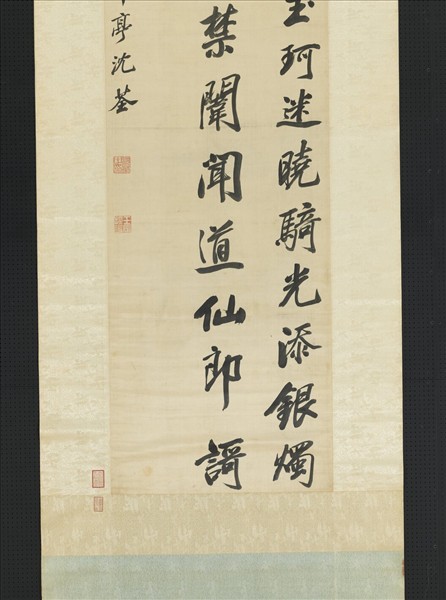 玉珂迷曉騎光添銀燭
禁闈聞道仙郎謌
亭沈荃